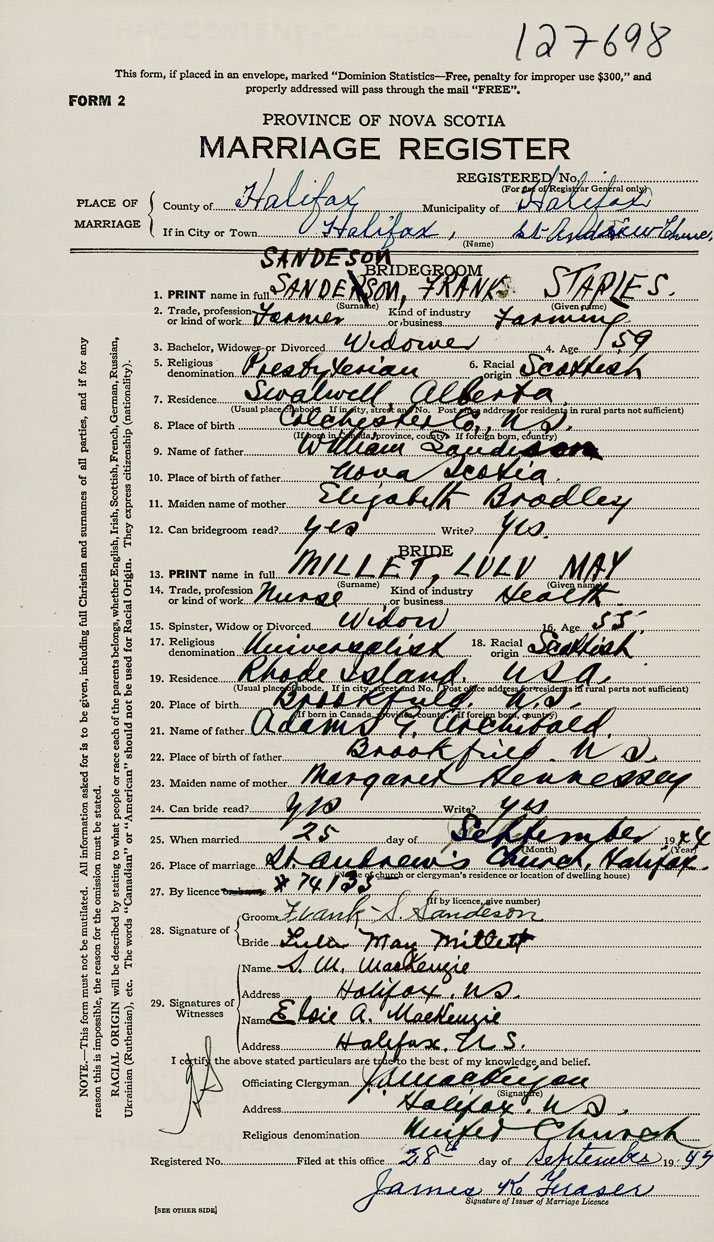 127698
This form, if placed in an envelope, marked “Dominion Statistics—Free, penalty for improper use $300,” and
properly addressed will pass through the mail “FREE”.
FORM 2
PROVINCE OF NOVA SCOTIA
MARRIAGE REGISTER
REGISTERED No.
(For use of Registrar General only)
PLACE OF MARRIAGE
County of Halifax Municipality of Halifax
If in City or Town Halifax, St Andrew
(Name)
SANDESON
BRIDEGROOM
1. PRINT name in full SANDERSON, FRANK STAPLES.
(Surname) (Given name)
2. Trade, profession or kind of work Farmer Kind of industry or business Farming
3. Bachelor, Widower or Divorced Widower 4. Age 59
5. Religious denomination Presbyterian 6. Racial origin Scottish
7. Residence Swalwell, Alberta
(Usual place of abode. If in city, street and No. Post office address for residents in rural parts not sufficient)
8. Place of birth Colchester Co., N.S.
(If born in Canada, province, county. If foreign born, country)
9. Name of father William Sandeson
10. Place of birth of father Nova Scotia
11. Maiden name of mother Elizabeth Bradley
12. Can bridegroom read? yes Write? yes.
BRIDE
13. PRINT name in full MILLET, LULU MAY
(Surname) (Given name)
14. Trade, profession or kind of work Nurse Kind of industry or business Health
15. Spinster, Widow or Divorced Widow 16. Age 55
17. Religious denomination Universalist 18. Racial origin Scottish
19. Residence Rhode Island. USA.
(Usual place of abode. If in city, street and No. Post office address for residents in rural parts not sufficient)
20. Place of birth Brookfield, N.S.
(If born in Canada, province, county. If foreign born, country)
21. Name of father Adams Archibald.
22. Place of birth of father Brookfield. N S.
23. Maiden name of mother Margaret Hennessey
24. Can bride read? yes Write? yes
25. When married 25 day of September 1944
(Month) (Year)
26. Place of marriage St Andrew's Church, Halifax.
(Name of church or clergyman's residence or location of dwelling house)
27. By licence # 74135
(If by licence, give number)
28. Signature of
Groom Frank S. Sandeson
Bride Lulu May Millett
29. Signatures of Witnesses
Name S. M. MacKenzie
Address Halifax. N.S.
Name Elsie A. MacKenzie
Address Halifax. N.S.
I certify the above stated particulars are true to the best of my knowledge and belief.
Officiating Clergyman
(Signature)
Address Halifax. N.S.
Religious denomination United Church
Registered No. Filed at this office 28th day of September 19
James K Fraser
Signature of Issuer of Marriage Licence
[SEE OTHER SIDE]
NOTE.—This form must not be mutilated. All information asked for is to be given, including full Christian and surnames of all parties, and if for any
reason this is impossible, the reason for the omission must be stated.
RACIAL ORIGIN will be described by stating to what people or race each of the parents belongs, whether English, Irish, Scottish, French, German, Russian,
Ukrainian (Ruthenian), etc. The words “Canadian” or “American” should not be used for Racial Origin. They express citizenship (nationality).